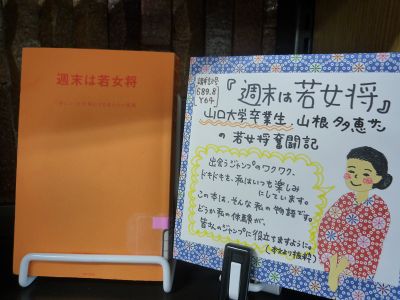 週末は若女将
請求記号
689.8
Y64
『週末は若女将』
山口大学卒業生、山根多恵サン
の若女将奮闘記
出会うジャンプのワクワク、
ドキドキを、私はいつも楽しみ
にしています。
この本は、そんな私の物語です。
どうか私の体験が、
皆さんのジャンプに役立ちますように。
(本文より抜粋)